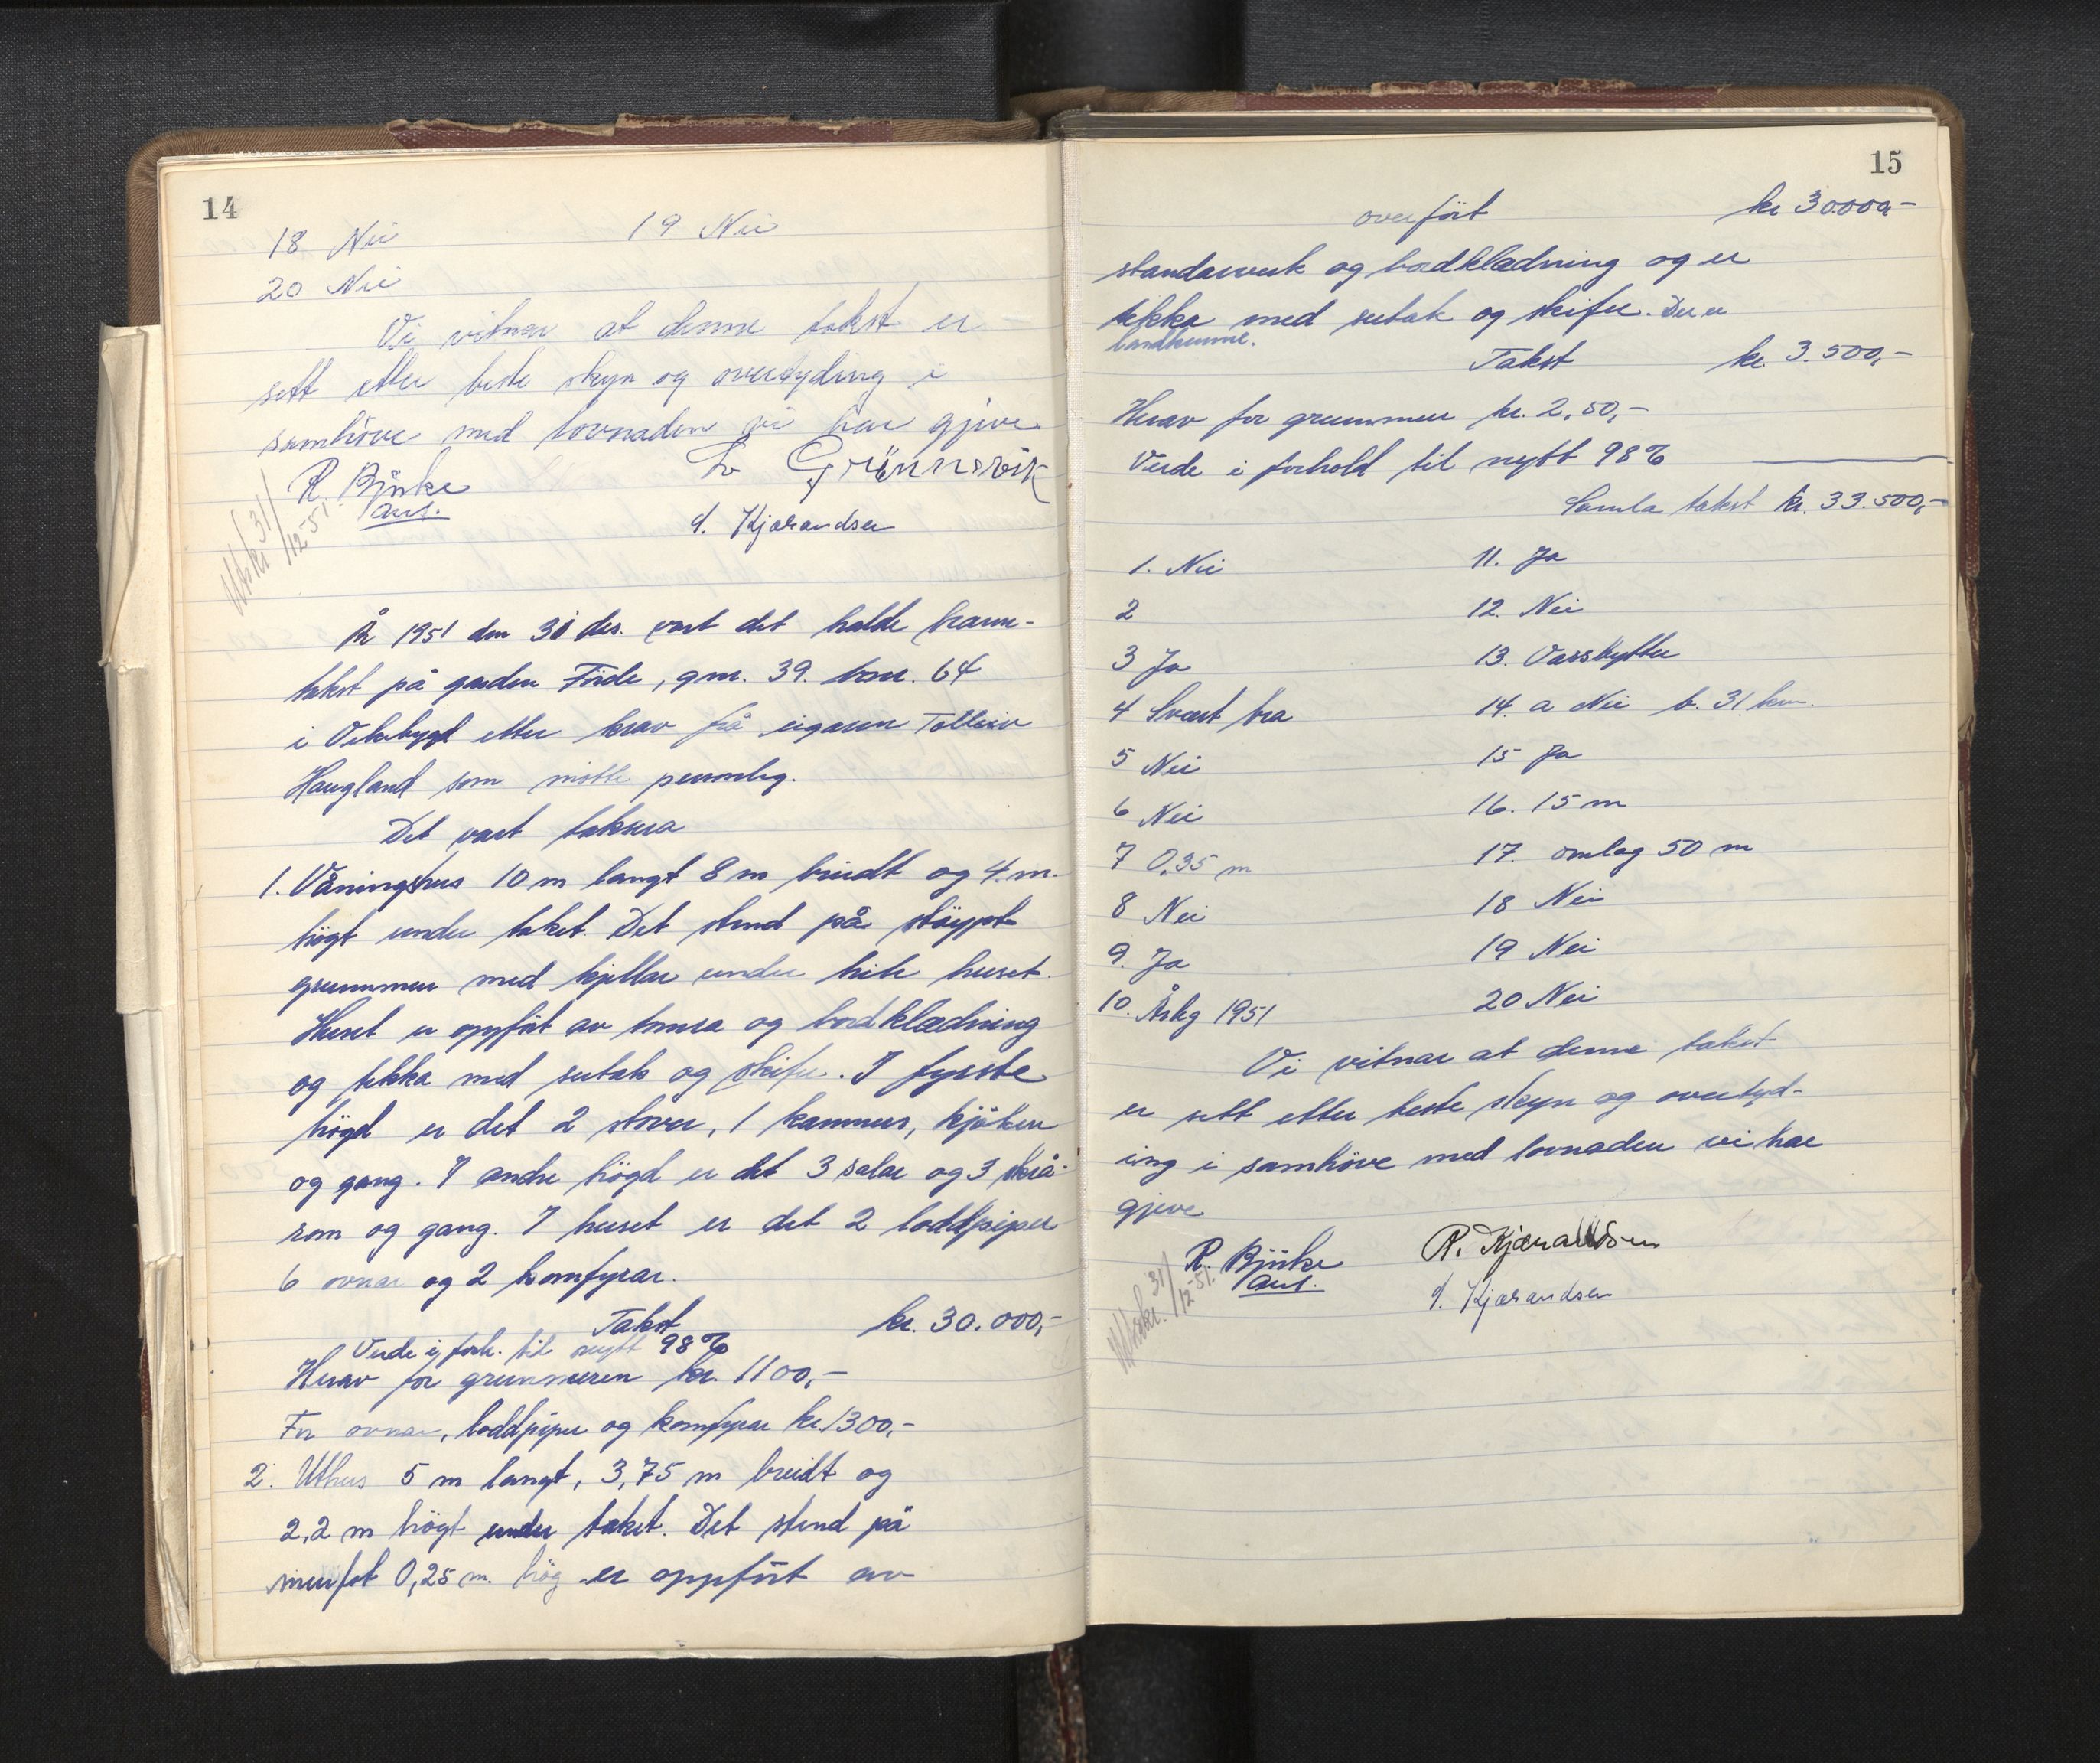 14
18 Nei 19 Nei
20 Nei
Vi vitnar at denne takst er
sett etter beste skyn og overtyding i
samhöve med lovnaden vi har gjeve
R. Björke Lo Grönnsvik
aut.
S. Kjærandsen
31/12-51.
År 1951 den 31 des. vart det halde brann-
takst på garden Förde, gnr. 39. bnr. 64
i Ölsbygd etter krav frå eigaren Tolleiv
Haugland som mötte personleg.
Det vart taksera
1. Våningshus 10 m langt 8 m breidt og 4 m.
högt under taket. Det stend på stöypt
grunnmur med kjellar under heile huset.
Huset er oppfört av tømra og bordklædning
og tekka med sutak og skifer. I fyrste
högd er det 2 stover, 1 kammers, kjöken
og gang. I andre högd er det 3 salar og 3 skrå-
rom og gang. I huset er det 2 loddpiper
6 ovnar og 2 komfyrar.
Takst kr. 30.000,-
Verde i forh. til nytt 98%
Herav for grunnmuren kr. 1100,-
For ovnar, loddpiper og komfyrar kr. 1300,-
2. Uthus 5 m langt, 3,75 m breidt og
2,2 m högt under taket. Det stend på
murfot 0,25 m. hög er oppfört av
15
overfört kr 30000,-
standarverk og bordklædning og er
tekka med sutak og skifer. Der er
Takst kr. 3.500,-
Herav for grunnmur kr. 2,50,-
Verde i forhold til nytt 98%
Samla takst kr. 33.500,-
1. Nei 11. Ja
2 12. Nei
3 Ja 13. Vasskytter
4 Svært bra 14. a Nei b. 31 km.
5 Nei 15 Ja
6 Nei 16. 15 m
7 0,35 m 17. omlag 50 m
8 Nei 18 Nei
9. Ja 19 Nei
10. Årleg 1951 20 Nei
Vi vitnar at denne takst
er sett etter beste skyn og overtyd-
ing i samhöve med lovnaden vi har
gjeve
R. Björke R. Kjærandsen
aut.
S. Kjærandsen
31/12-51.